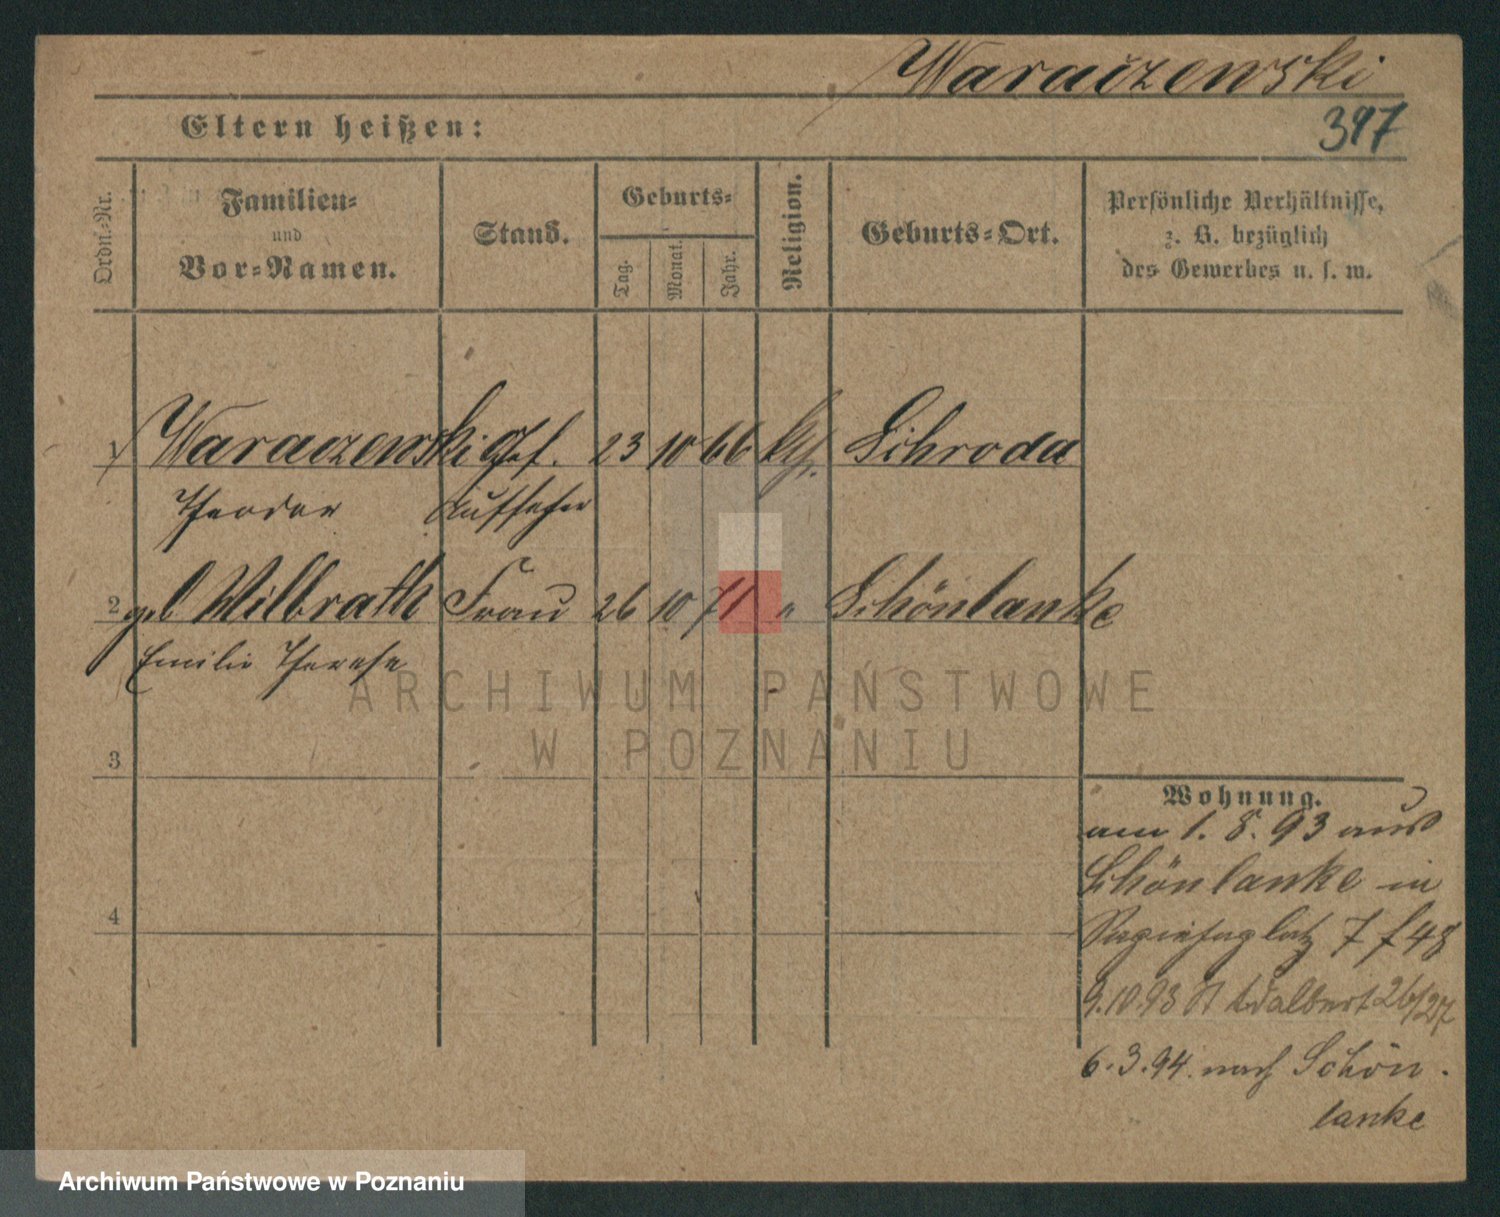 Waraczewski
397
Eltern heißen:
Ordn.-Nr.
Familien-
und
Vor-Namen.
Stand.
Geburts-
Tag.
Monat.
Jahr.
Religion.
Geburts-Ort.
Persönliche Verhältnisse,
z. B. bezüglich
des Gewerbes u. s. w.
1 Waraczewski Gef. 23 10 66 kth. Schroda
Theodor Aufseher
2 geb Wilbrath Frau 26 10 71 " Schönlanke
Emilie Therese
ARCHIWUM PAŃSTWOWE
W POZNANIU
3
Wohnung.
am 1. 8. 93 aus
Schönlanke in
4
7 f 48
9.10.93 St Adalbert 26/27
6.3.94. nach Schön-
lanke
Archiwum Państwowe w Poznaniu